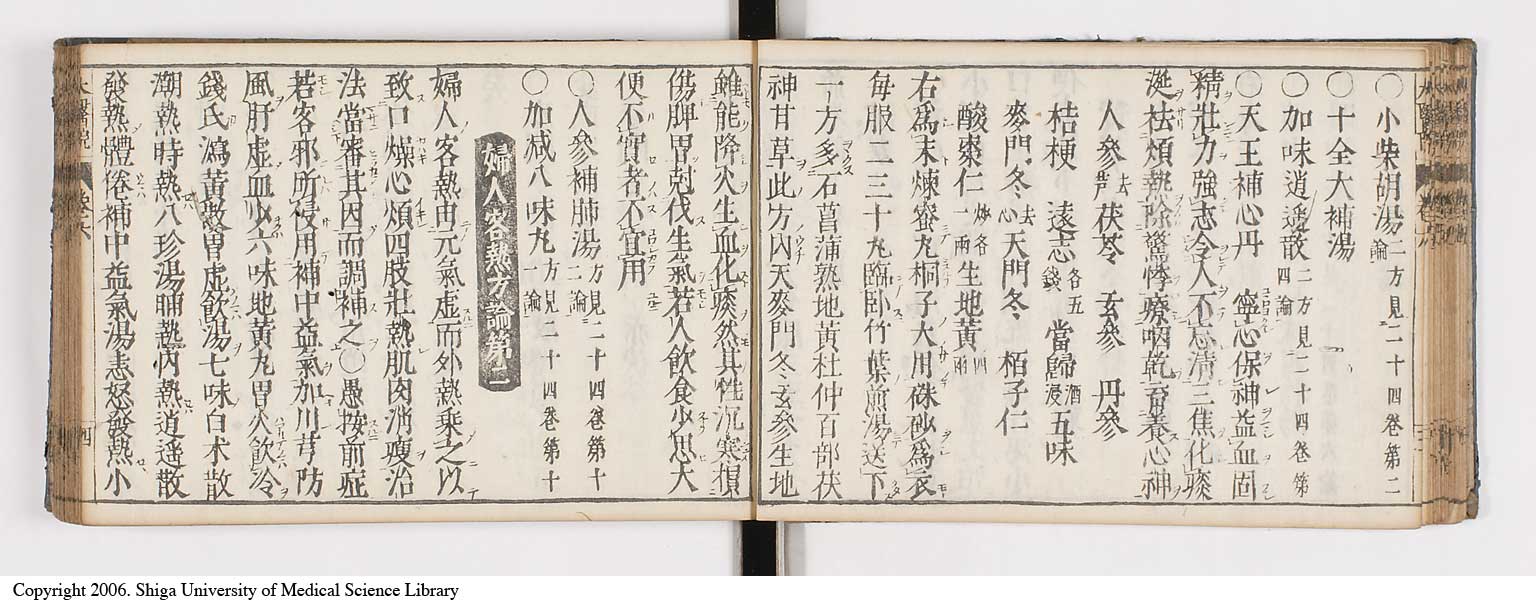 〇小柴胡湯二方見二十四卷第二論
〇十全大補湯
〇加味逍遙散二方見二十四卷第四論
〇天王補心丹　寧心保神益血固
精壯力強志令人不忘淸三焦化痰
涎袪煩熱除驚悸療咽乾育養心神
人參去芦茯苓　玄參　丹參
桔梗　遠志各五錢當歸酒浸五味
麥門冬去心天門冬　栢子仁
酸棗仁炒各一兩生地黃四兩
右爲末煉蜜丸桐子大用硃砂爲衣
每服二三十丸臨臥竹葉煎湯送下
一方多石菖蒲熟地黃杜仲百部茯
神甘草此方內天麥門冬玄參生地
雖能降火生血化痰然其性沉寒損
傷脾胃尅伐生氣若人飮食少思大
便不實者不宜用
〇人參補肺湯方見二十四卷第十二論
〇加减八味丸方見二十四卷第十一論
婦人客熱方論第二
婦人客熱由元氣虛而外熱乘之以
致口燥心煩四肢壯熱肌肉消瘦治
法當審其因而調補之〇愚按前症
若客邪所侵用補中益氣加川芎防
風肝虛血少六味地黃丸胃火飮冷
錢氏瀉黃散胃虛飮湯七味白术散
潮熱時熱八珍湯晡熱內熱逍遙散
發熱體倦補中益氣湯恚怒發熱小
四
Copyright 2006. Shiga University of Medical Science Library